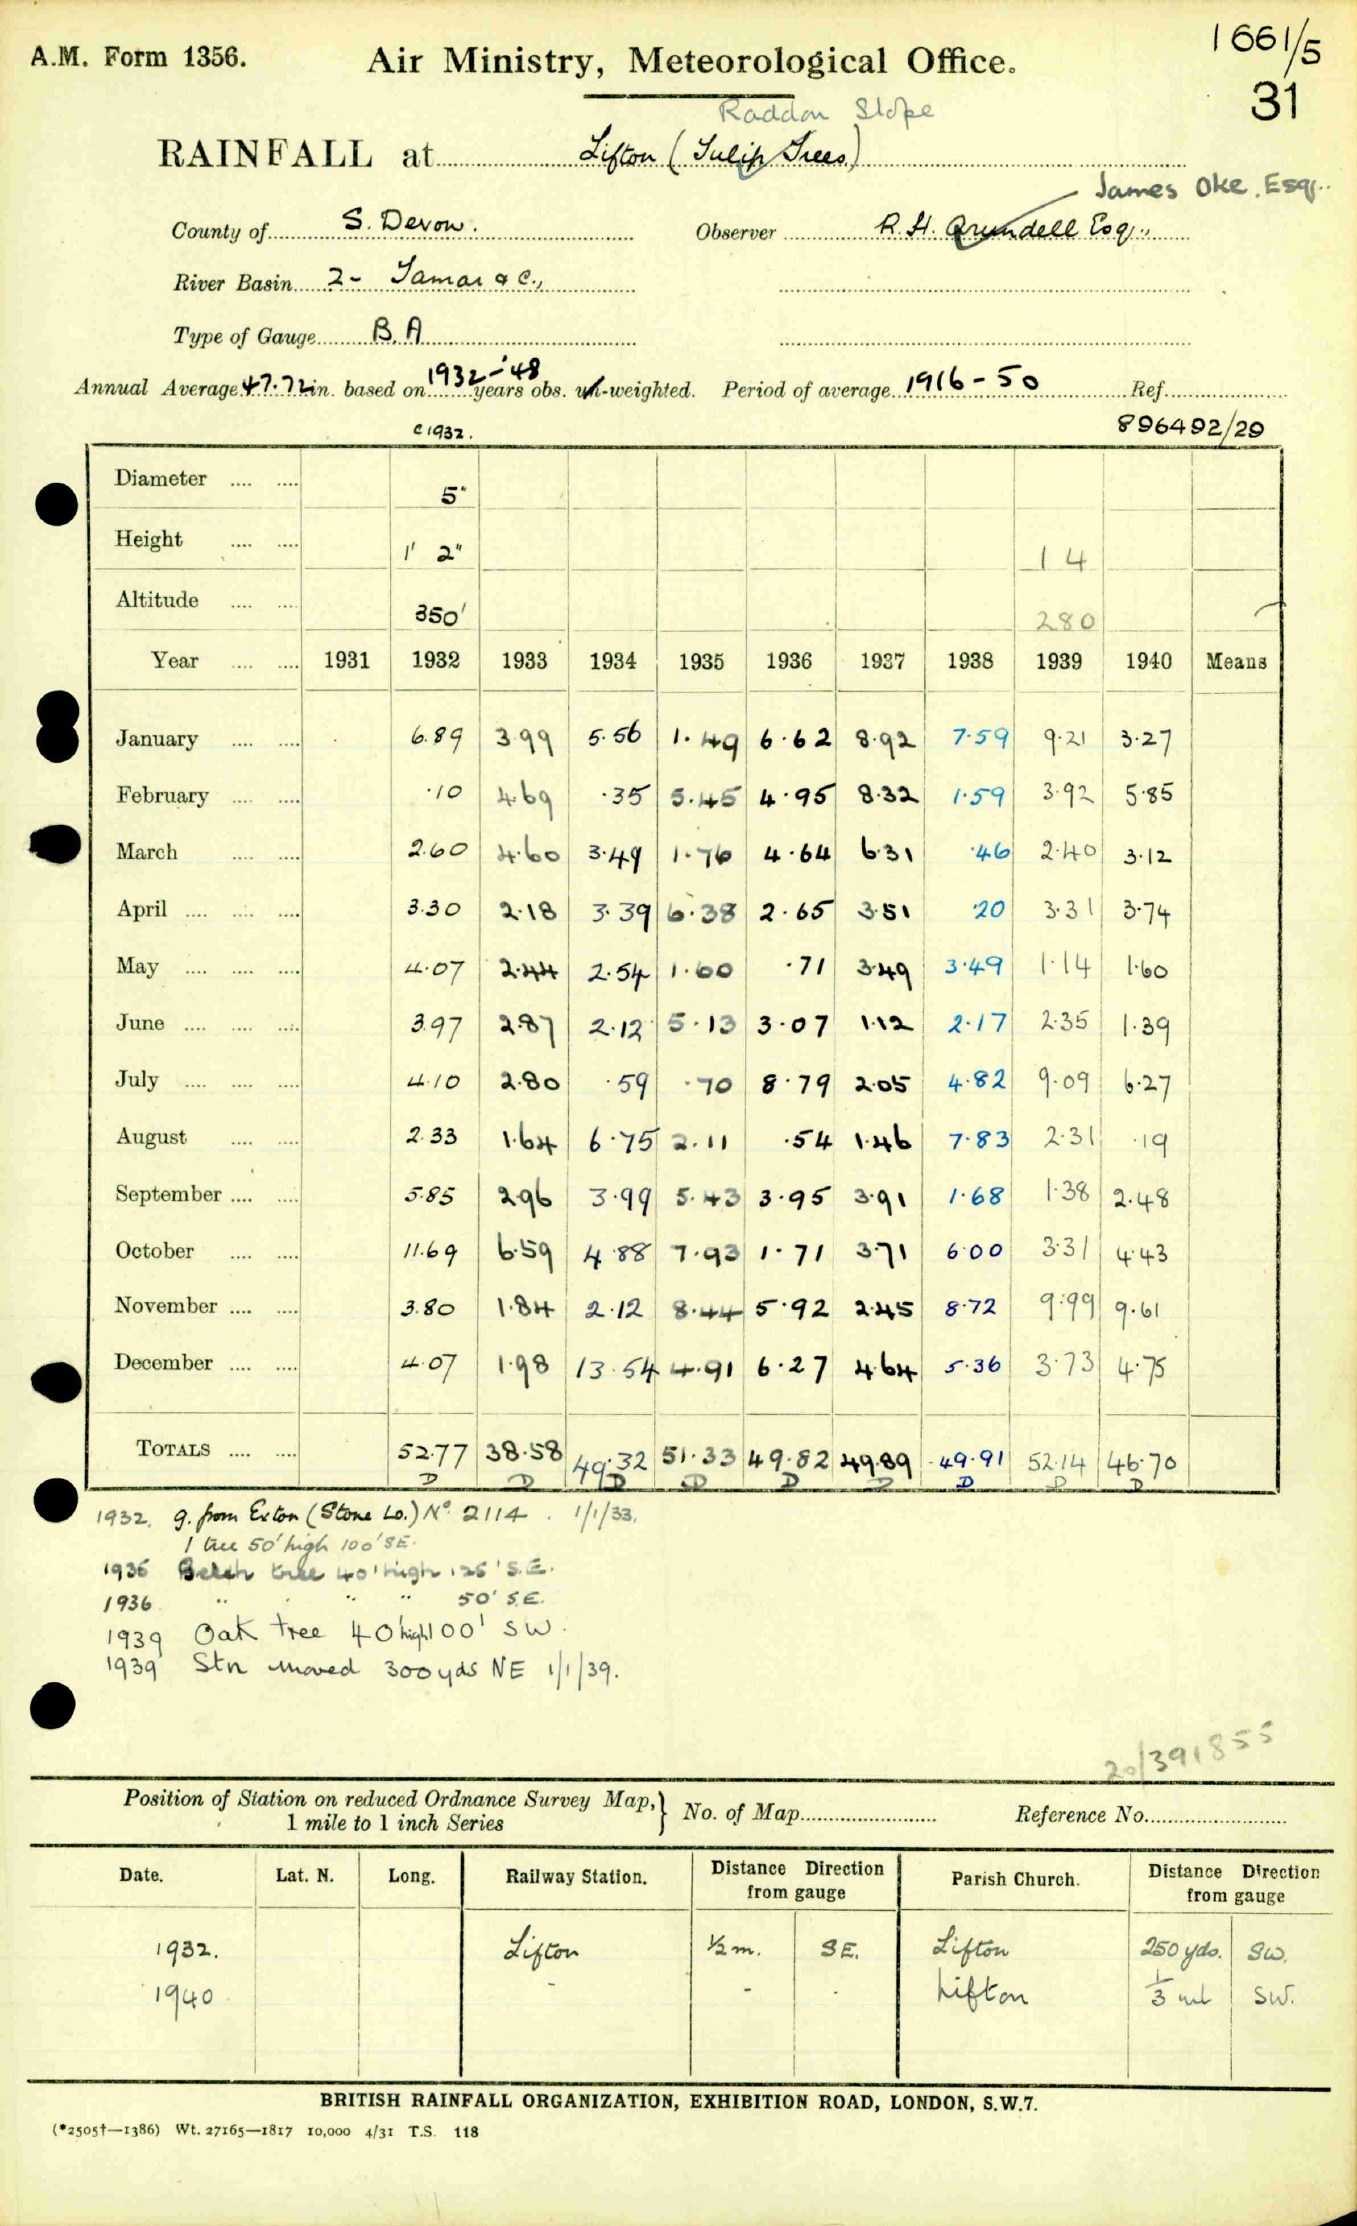 1661/5
A.M. Form 1356. Air Ministry, Meteorological Office.
31
Raddon Slope
RAINFALL at Lifton (Tulip Trees)
James Oke. Esq.
County of S. Devon. Observer R. H. Arundell Esq.,
River Basin 2- Tamar & C.,
Type of Gauge B.A
Annual Average 47.72 in. based on 1932-'48 years obs. un-weighted. Period of average 1916-50 Ref.
c1932. 896492/29
Diameter .... .... 5"
Height .... .... 1' 2" 1 4
Altitude .... .... 350' 280
Year .... .... 1931 1932 1933 1934 1935 1936 1937 1938 1939 1940 Means
January .... .... 6.89 3.99 5.56 1.49 6.62 8.92 7.59 9.21 3.27
February .... .... .10 4.69 .35 5.45 4.95 8.32 1.59 3.92 5.85
March .... .... 2.60 4.60 3.49 1.76 4.64 6.31 .46 2.40 3.12
April .... .... .... 3.30 2.18 3.39 6.38 2.65 3.51 .20 3.31 3.74
May .... .... .... 4.07 2.44 2.54 1.60 .71 3.49 3.49 1.14 1.60
June .... .... .... 3.97 2.87 2.12 5.13 3.07 1.12 2.17 2.35 1.39
July .... .... .... 4.10 2.80 .59 .70 8.79 2.05 4.82 9.09 6.27
August .... .... 2.33 1.64 6.75 2.11 .54 1.46 7.83 2.31 .19
September .... .... 5.85 2.96 3.99 5.43 3.95 3.91 1.68 1.38 2.48
October .... .... 11.69 6.59 4.88 7.93 1.71 3.71 6.00 3.31 4.43
November .... .... 3.80 1.84 2.12 8.44 5.92 2.45 8.72 9.99 9.61
December .... .... 4.07 1.98 13.54 4.91 6.27 4.64 5.36 3.73 4.75
TOTALS .... .... 52.77 38.58 49.32 51.33 49.82 49.89 49.91 52.14 46.70
D D D D D D D D D
1932. g. from Exton (Stone Lo.) No. 2114. 1/1/33.
1 tree 50' high 100' SE.
1936 Beech tree 40' high 125' S.E.
1936 " " " 50' S.E.
1939 Oak tree 40' high 100' SW.
1939 Stn moved 300 yds NE 1/1/39.
20/391855
Position of Station on reduced Ordnance Survey Map, } No. of Map Reference No.
1 mile to 1 inch Series
Date. Lat. N. Long. Railway Station. Distance Direction from gauge Parish Church. Distance Direction from gauge
1932. Lifton ½ m. SE. Lifton 250 yds. SW.
1940 - - - Lifton 1/3 ml SW.
BRITISH RAINFALL ORGANIZATION, EXHIBITION ROAD, LONDON, S.W.7.
(*2505†—1386) Wt. 27165—1817 10,000 4/31 T.S. 118